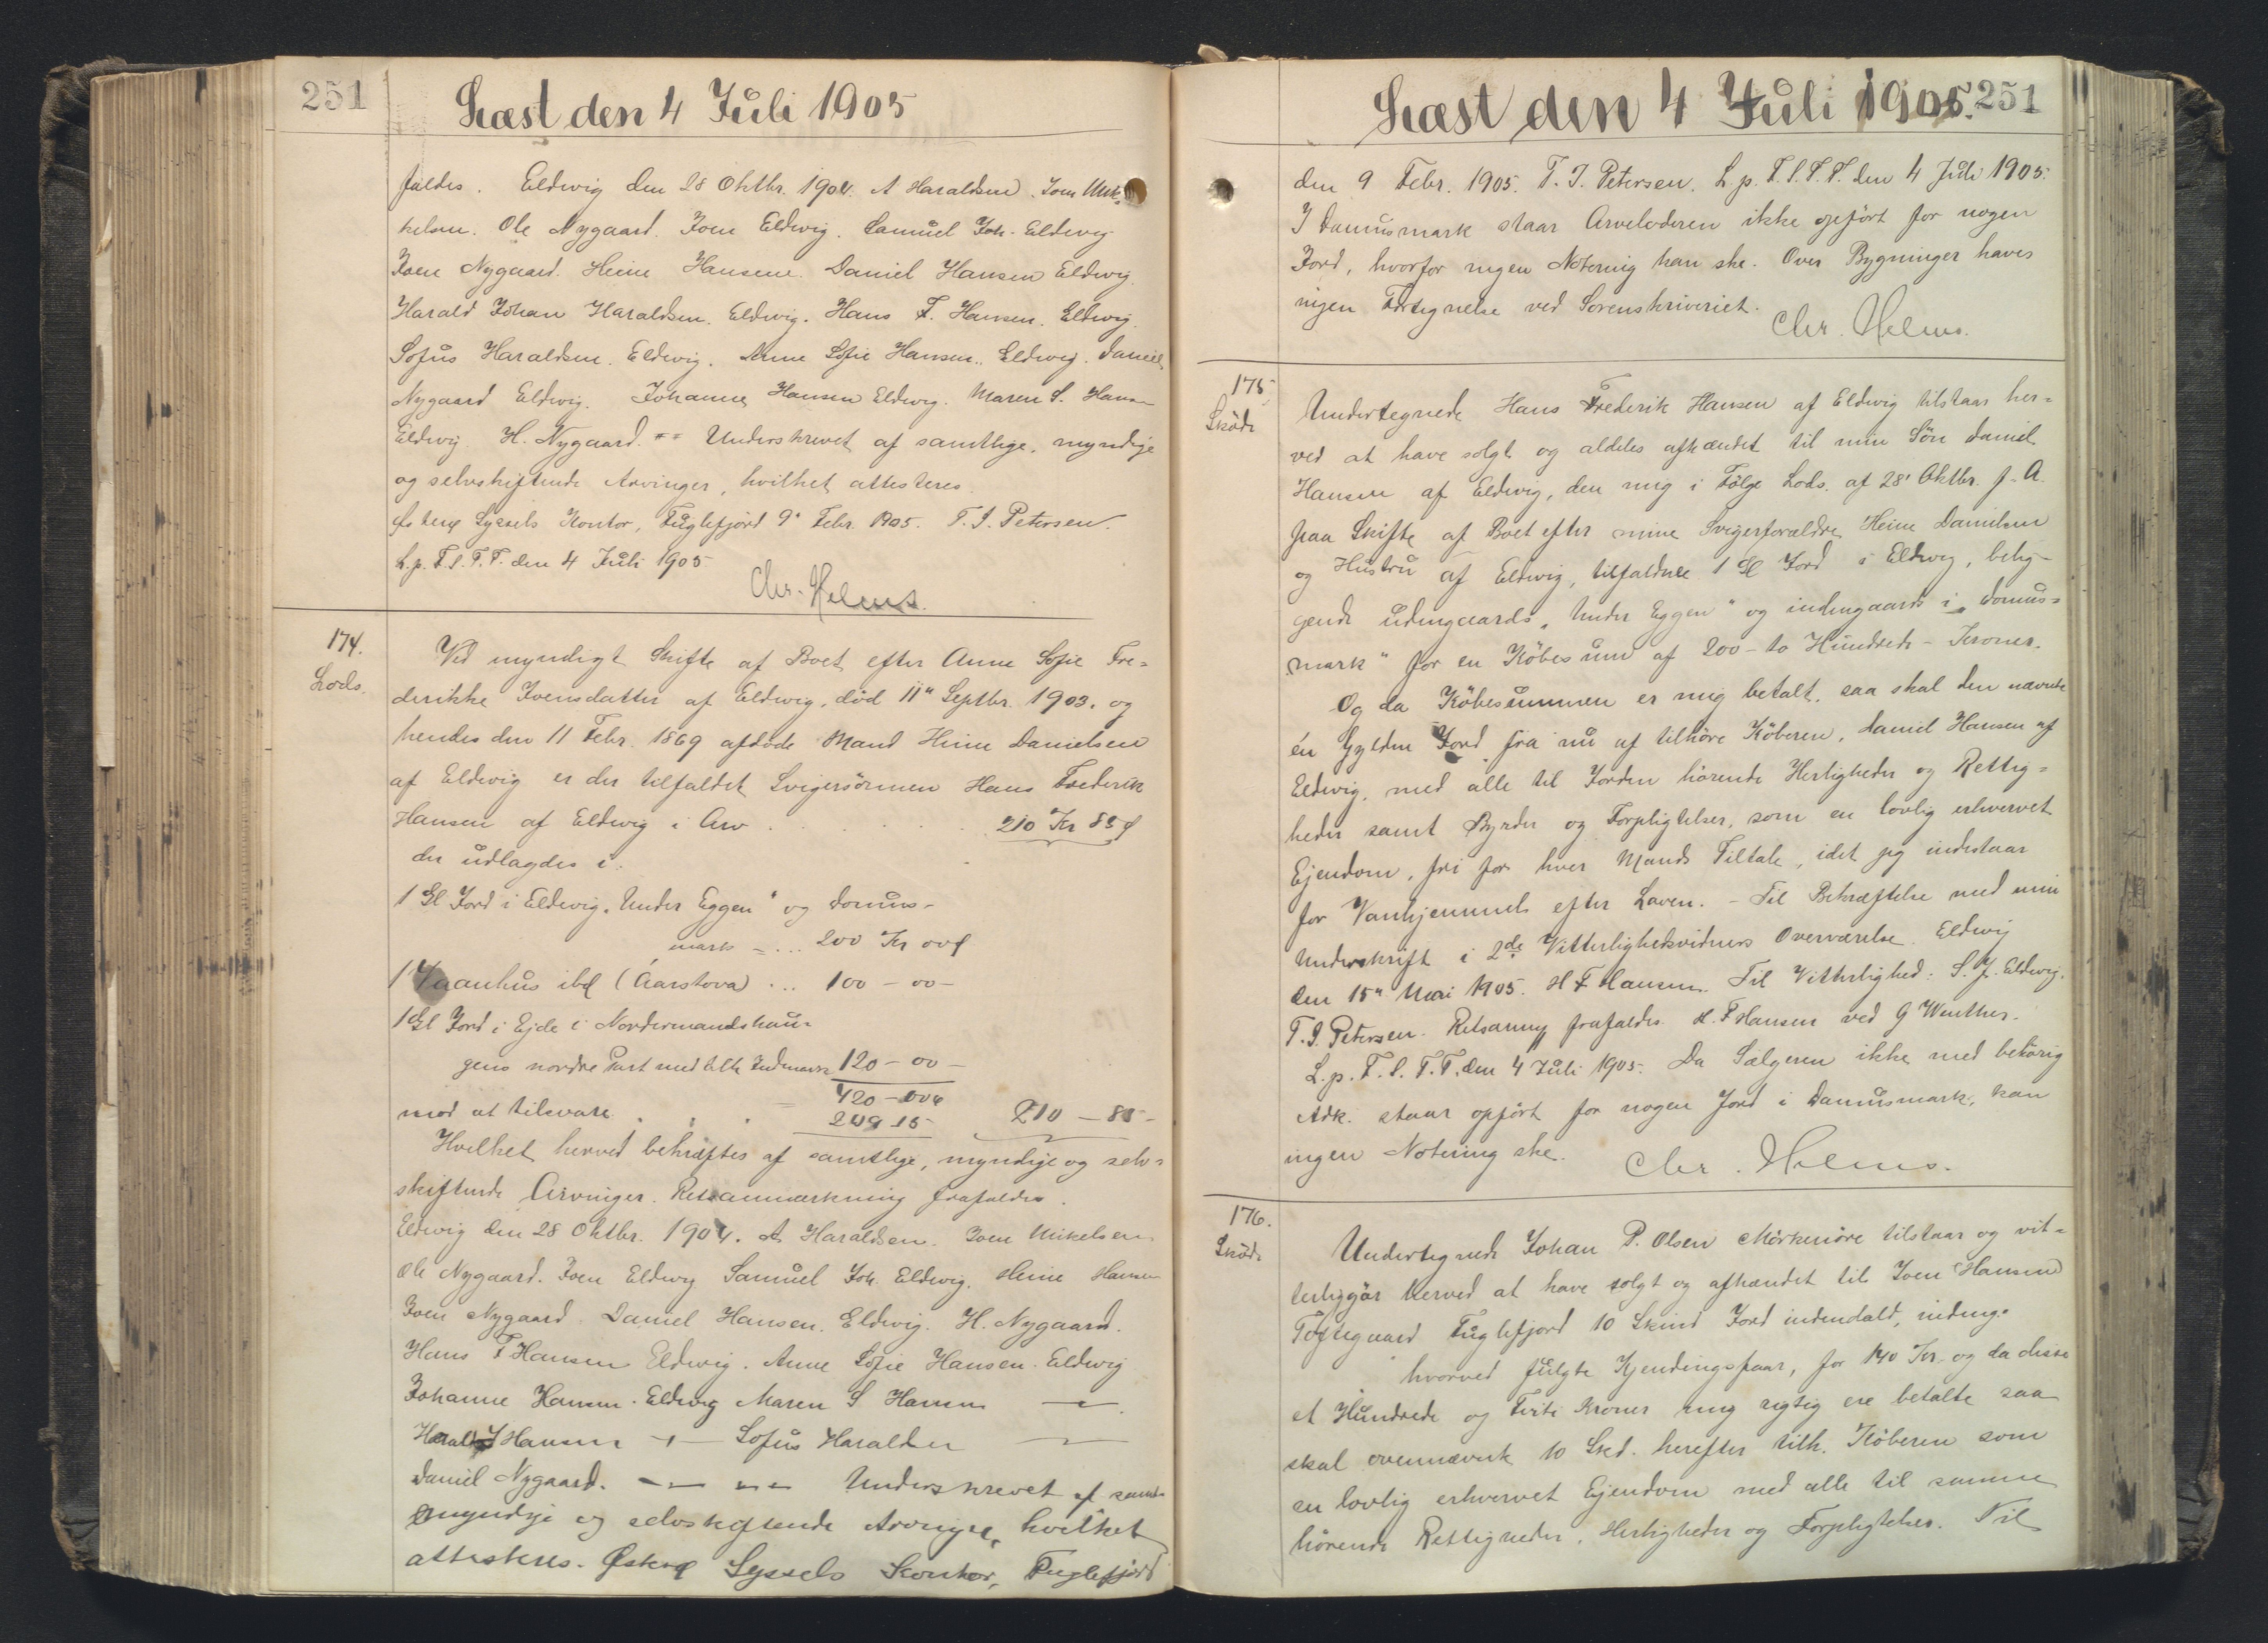 251
Læst den 4 Juli 1905
faldes. Eldevig den 28 Oktbr. 1904. A Haraldsen. Joen Mik-
kelsen. Ole Nygaard. Joen Eldevig. Samuel Joh. Eldevig
Joen Nygaard. Heine Hansen. Daniel Hansen Eldevig.
Harald Johan Haraldsen. Eldevig. Hans F. Hansen. Eldevig.
Sofus Haraldsen. Eldevig. Anne Sofie Hansen. Eldevig. Daniel
Nygaard Eldevig. Johanne Hansen Eldevig. Maren S. Hansen
Eldevig. H. Nygaard. == Underskrevet af samtlige, myndige
og selvskiftende Arvinger, hvilket attesteres.
Østerø Syssels Kontor, Fuglefjord 9' Febr. 1905. T. J. Petersen.
L. p. F. S. T. T. den 4 Juli 1905
Chr. Helms.
174.
Lods.
Ved myndigt Skifte af Boet efter Anne Sofie Fre-
derikke Joensdatter af Eldevig, död 11" Septbr. 1903, og
hendes den 11 Febr. 1869 afdöde Mand Heine Danielsen
af Eldevig er der tilfaldet Svigersönnen Hans Frederik
Hansen af Eldevig i Arv . . . . . 210 Kr 85
der udlagdes i:
1 Gl Jord i Eldevig "Under Eggen" og Domus-
mark = ... 200 Kr 00
1 Vaanhus ibd (Aarstova) ... 100 - 00 -
1 Gl Jord i Ejde i Nordermandshau-
gens nordre Part med tilh. Indmark 120 - 00 -
420 - 00
mod at tilsvare . . . 209 15 210 - 85 -
Hvilket herved bekræftes af samtlige, myndige og selv-
skiftende Arvinger. Retsanmærkning frafaldes.
Eldevig den 28 Oktbr. 1904. A Haraldsen. Joen Mikelsen
Ole Nygaard. Joen Eldevig Samuel Joh. Eldevig. Heine Hansen
Joen Nygaard. Daniel Hansen. Eldevig. H. Nygaard.
Hans F Hansen Eldevig. Anne Sofie Hansen. Eldevig
Johanne Hansen. Eldevig Maren S Hansen —
Harald J Hansen — Sofus Haraldsen —
Daniel Nygaard. — == Underskrevet af samt-
myndige og selvskiftende Arvinger, hvilket
attesteres. Østerø Syssels Kontor, Fuglefjord
Læst den 4 Juli 1905.
251
den 9 Febr. 1905. T. J. Petersen. L. p. F. S. T. T. den 4 Juli 1905.
I Damusmark staar Arveladeren ikke opfört for nogen
Jord, hvorfor ingen Notering kan ske. Over Bygninger haves
ingen Fortegnelse ved Sorenskriveriet.
Chr. Helms.
175
Sköde
Undertegnede Hans Frederik Hansen af Eldevig tilstaar her-
ved at have solgt og aldeles afhændet til min Sön Daniel
Hansen af Eldevig, den mig i Fölge Lods. af 28' Oktbr. f. A.
paa Skifte af Boet efter mine Svigerforældre Heine Danielsen
og Hustru af Eldevig, tilfaldne 1 Gl Jord i Eldevig, belig-
gende udengaards "Under Eggen" og indengaards i "Domus-
mark" for en Köbesum af 200 - to Hundrede - Kroner.
Og da Köbesummen er mig betalt, saa skal den nævnte
én Gylden Jord fra nu af tilhöre Köberen, Daniel Hansen af
Eldevig, med alle til Jorden hörende Herligheder og Rettig-
heder samt Byrder og Forpligtelser, som en lovlig erhvervet
Ejendom, fri for hver Mands Tiltale, idet jeg indestaar
for Vanhjemmel efter Loven. - Til Bekræftelse med min
Underskrift i 2de Vitterlighedsvidners Overværelse. Eldevig
den 15" Mai 1905. H F Hansen. Til Vitterlighed: S. J. Eldevig.
T. J. Petersen. Retsanm frafaldes. H. F Hansen ved G Wenther.
L. p. F. S. T. T. den 4 Juli 1905. Da Sælgeren ikke med behörig
Adk. staar opfört for nogen Jord i Damusmark, kan
ingen Notering ske.
Chr. Helms.
176.
Sköde
Undertegnede Johan P. Olsen Mörkeniöre tilstaar og vit-
terliggör herved at have solgt og afhændet til Joen Hansen
Toftegaard Fuglefjord 10 Skind Jord indendals, indeng.
hvorved fulgte Kjendingsfaar, for 140 Kr. og da disse
et Hundrede og Firti Kroner mig rigtig ere betalte saa
skal ovennævnte 10 Skd. herefter tilh. Köberen som
en lovlig erhvervet Ejendom med alle til samme
hörende Rettigheder, Herligheder og Forpligtelser. Til